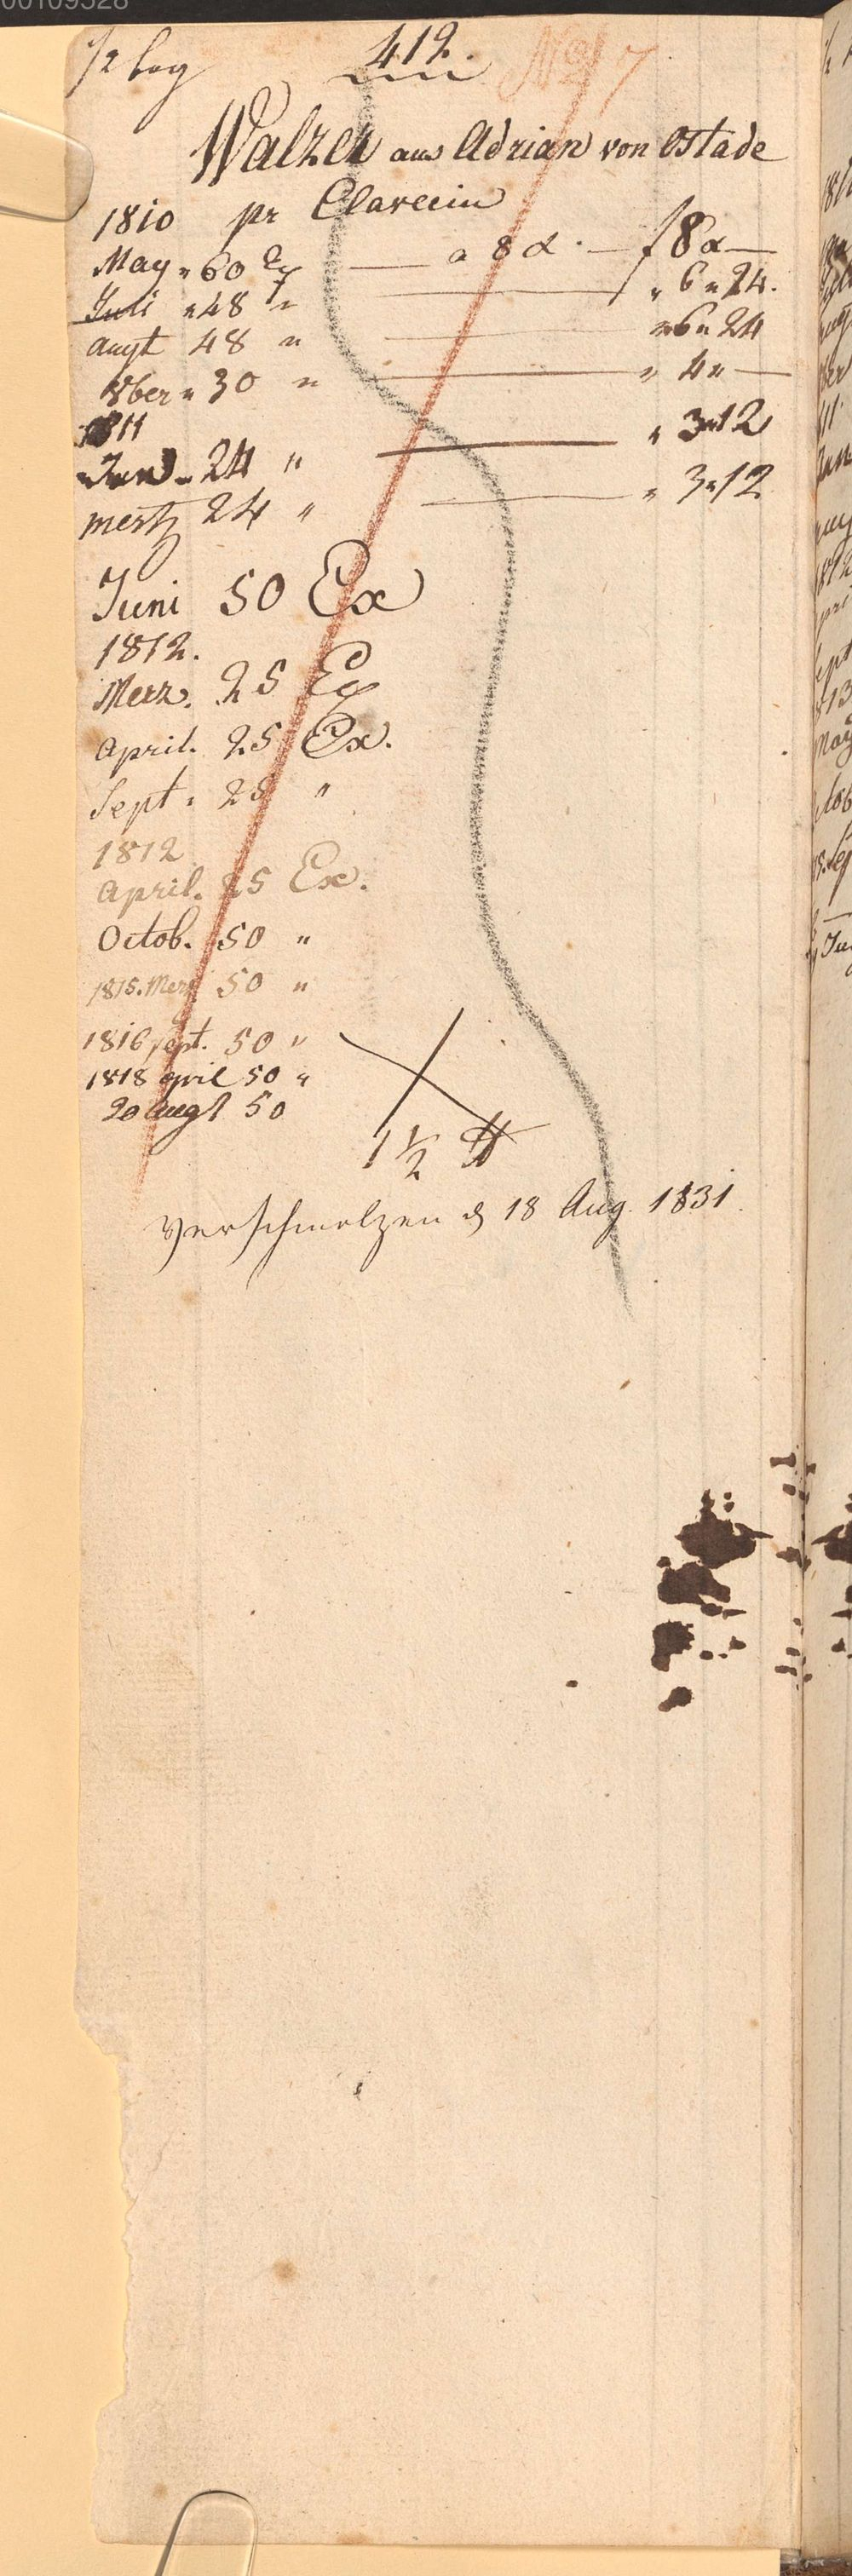 00109528
1/2 bog 412. No 7
Walzer aus Adrian von Ostade
1810 pr Clavecin
May " 60 Ex — a 8 x. — f 8 x —
Juli " 48 " — " 6 " 24.
augt 48 " — " 6 " 24
8ber " 30 " — " 4 " —
1811
Jun " 24 " — " 3 " 12
mertz 24 " — " 3 " 12
Juni 50 Ex
1812.
Merz. 25 Ex
april. 25 Ex.
Sept. 25 "
1812
april. 25 Ex.
Octob. 50 "
1815. Merz 50 "
1816 sept. 50 "
1818 april 50 "
20 augt 50
1 1/2 ℔
verschmolzen d 18 Aug. 1831.